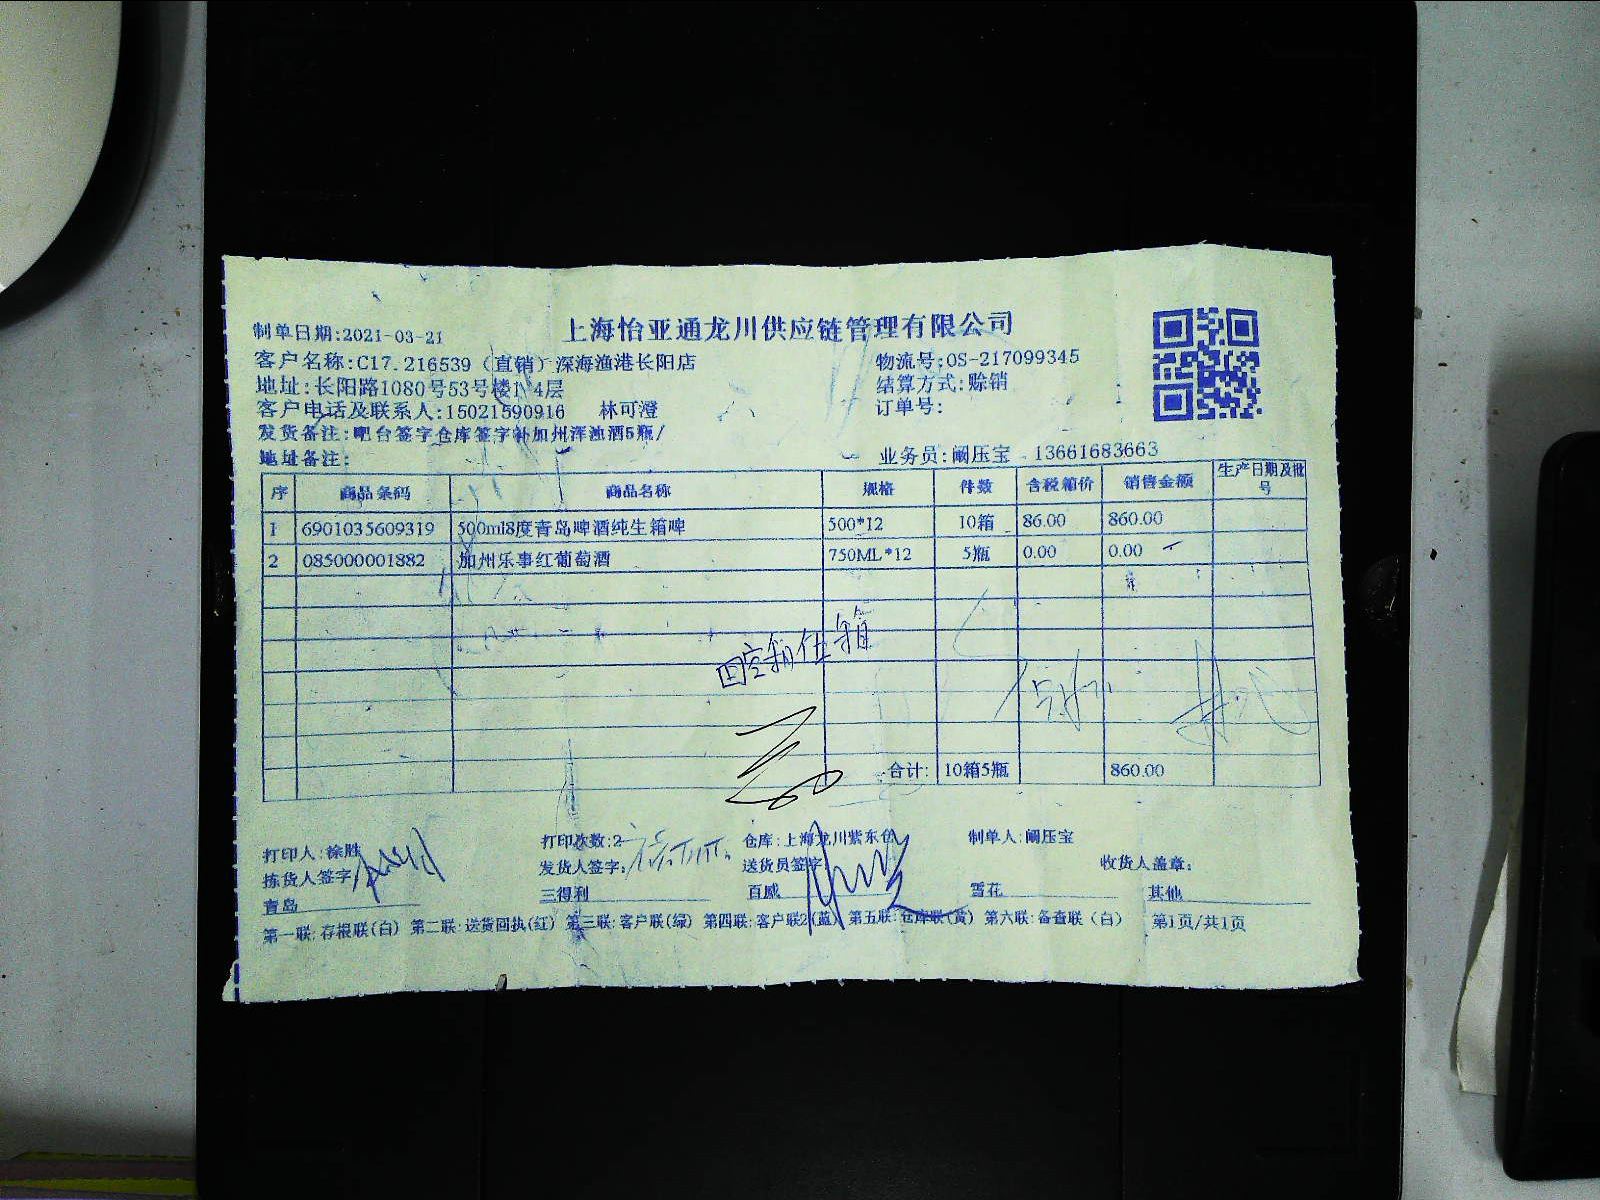 上海怡亚通龙川供应链管理有限公司
制单日期:2021-03-21
客户名称:C17.216539（直销）深海渔港长阳店 物流号:OS-217099345
地址:长阳路1080号53号楼1 4层 结算方式:赊销
客户电话及联系人:15021590916 林可澄 订单号:
发货备注:吧台签字仓库签字补加州浑浊酒5瓶/
地址备注: 业务员:阚压宝 13661683663
序 商品条码 商品名称 规格 件数 含税箱价 销售金额 生产日期及批号
1 6901035609319 500ml8度青岛啤酒纯生箱啤 500*12 10箱 86.00 860.00
2 085000001882 加州乐事红葡萄酒 750ML*12 5瓶 0.00 0.00
回空箱伍箱
合计: 10箱5瓶 860.00
打印人:徐胜 打印次数:2 仓库:上海龙川紫东仓 制单人:阚压宝
拣货人签字 发货人签字: 送货员签字 收货人盖章:
青岛 三得利 百威 雪花 其他
第一联:存根联(白) 第二联:送货回执(红) 第三联:客户联(绿) 第四联:客户联2(蓝) 第五联:仓库联(黄) 第六联:备查联(白) 第1页/共1页